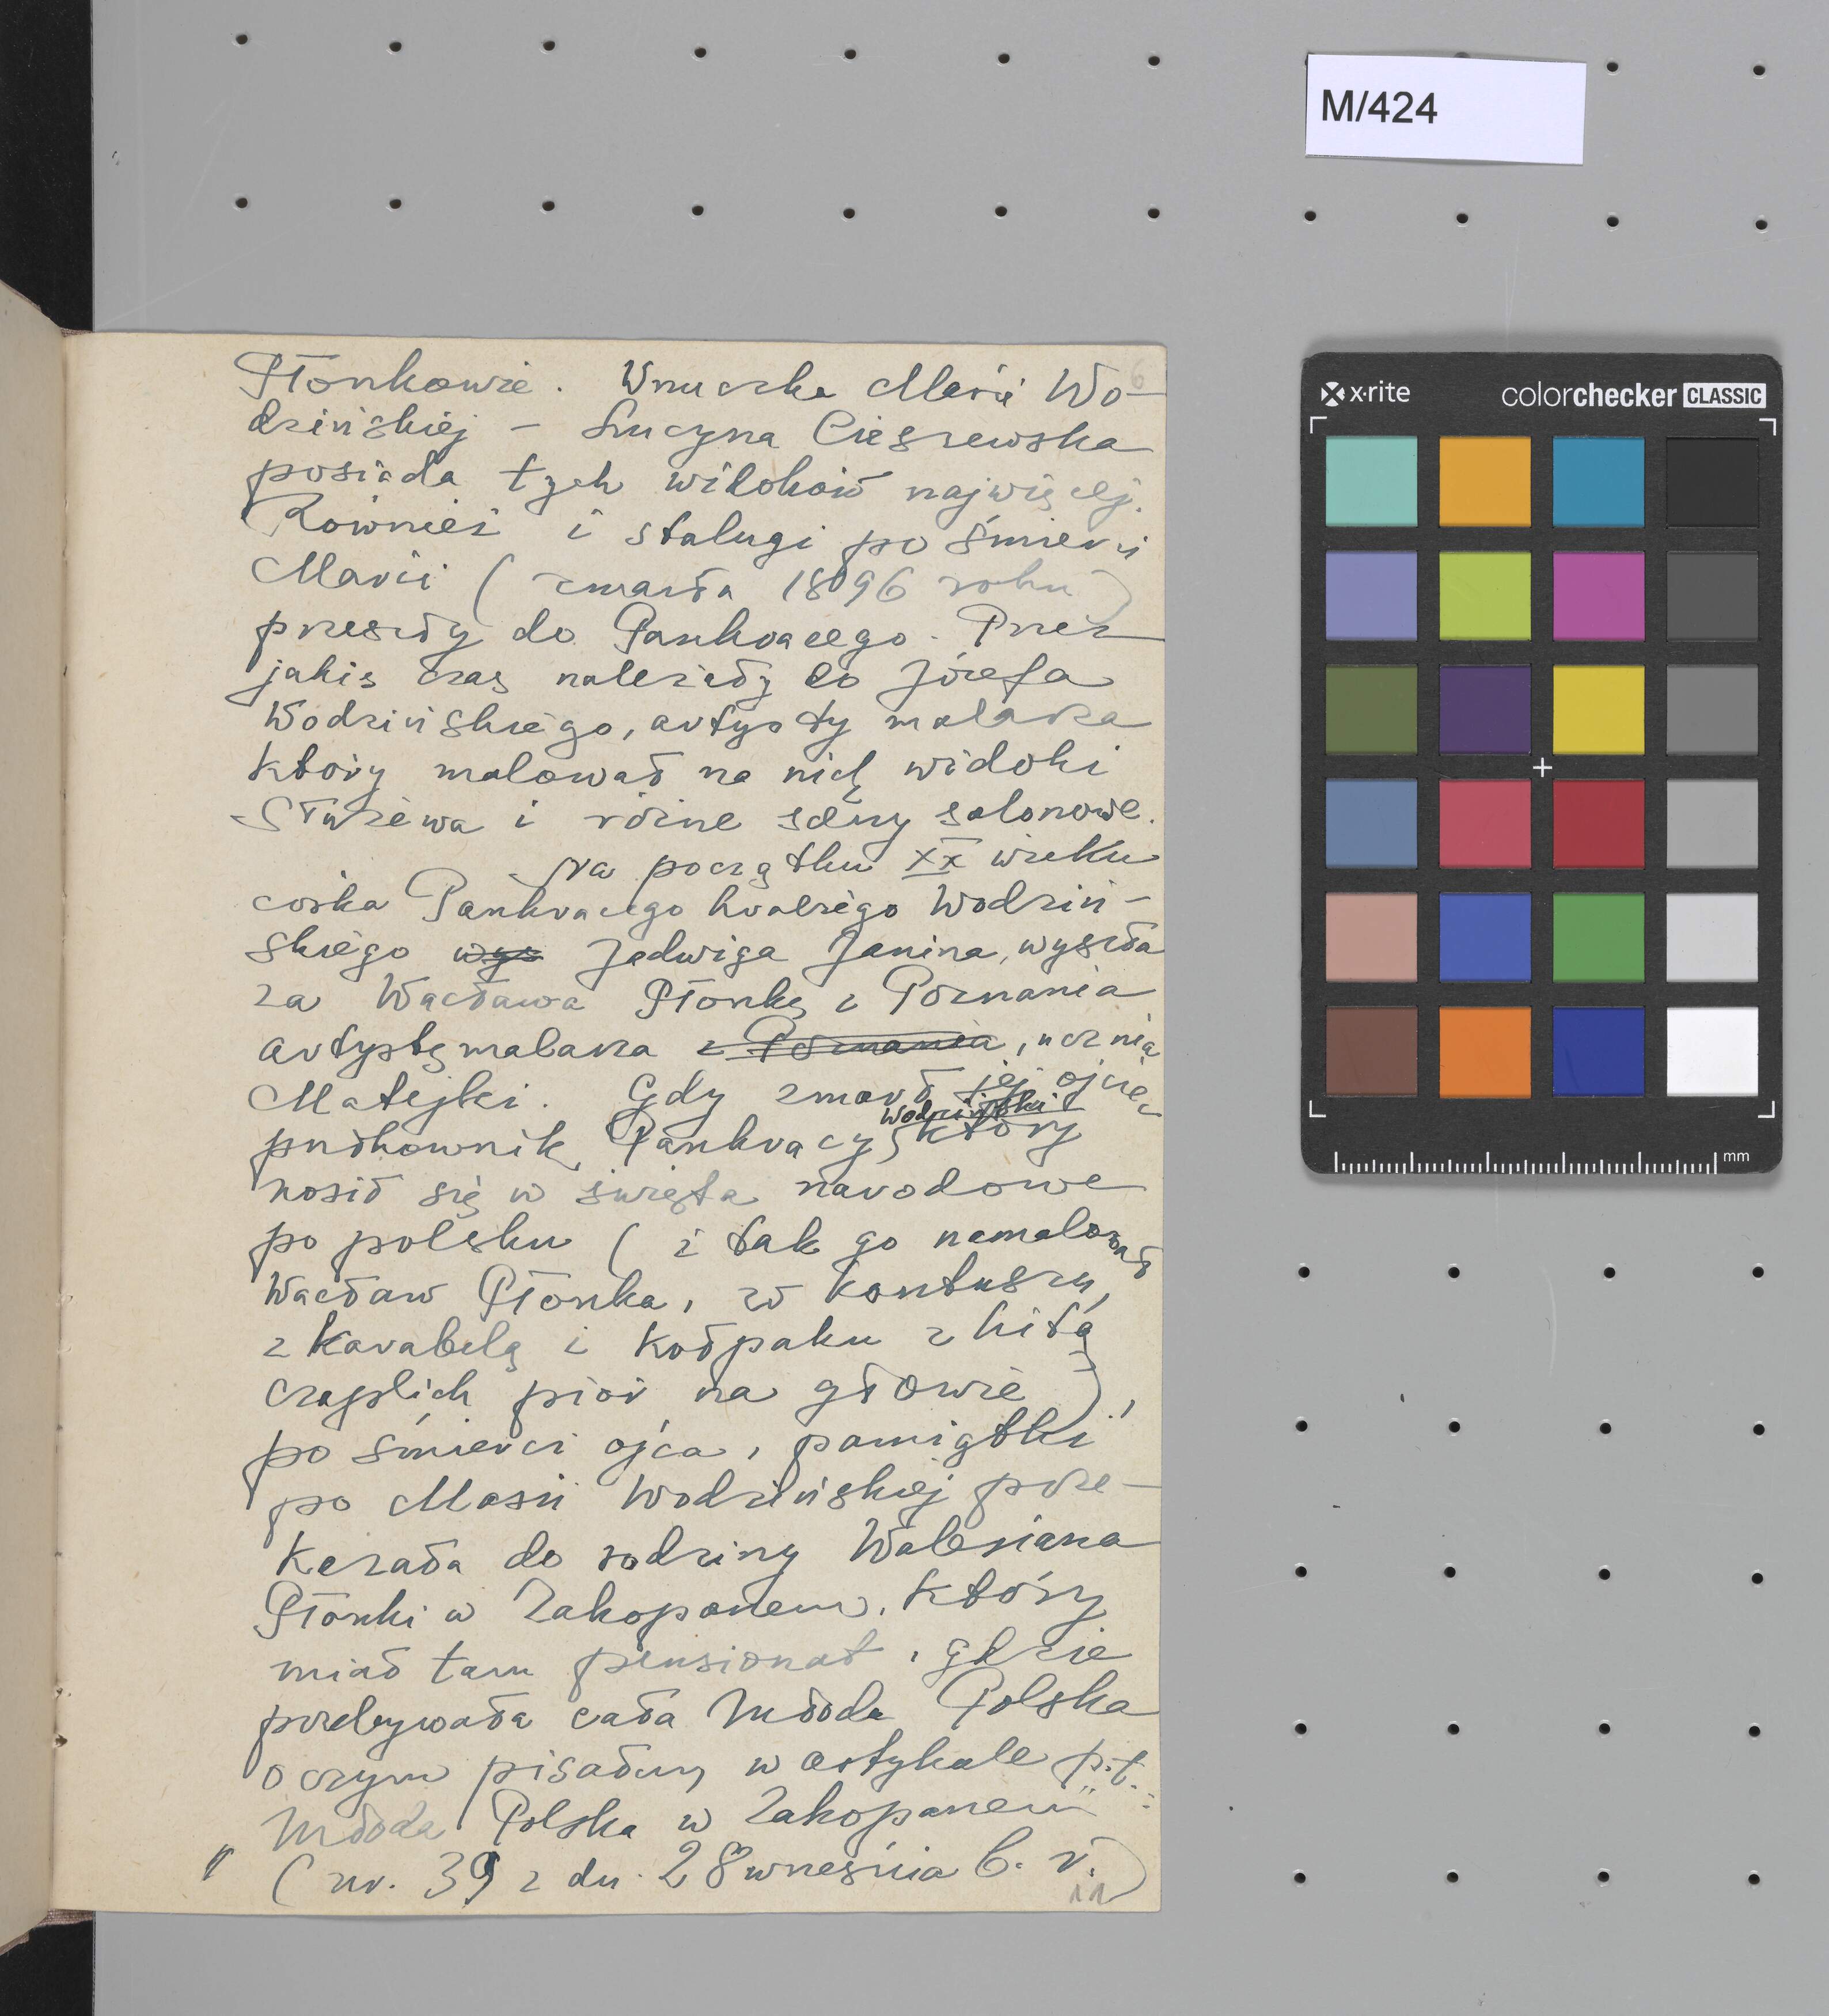 M/424
x·rite colorchecker CLASSIC
mm
6
Płonkowie. Wnuczka Marii Wo-
dzińskiej - Lucyna Cieszewska
posiada tych widoków najwięcej.
Również i stalugi po śmierci
Marii (zmarła 1896 roku)
przeszły do Pankracego. Przez
jakiś czas należały do Józefa
Wodzińskiego, artysty malarza
który malował na nich widoki
Służewa i różne sceny salonowe.
Na początku XX wieku
córka Pankracego hrabiego Wodziń-
skiego wys Jadwiga Janina, wyszła
za Wacława Płonkę z Poznania
artystę malarza z Poznania, ucznia
Matejki. Gdy zmarł jej ojciec
pułkownik Pankracy Wodziński który
nosił się w święta narodowe
po polsku (i tak go namalował
Wacław Płonka, w kontuszu,
z karabelą i kołpaku z kitą
czaplich piór na głowie),
po śmierci ojca, pamiątki
po Marii Wodzińskiej prze-
kazała do rodziny Waleriana
Płonki w Zakopanem, który
miał tam pensjonat, gdzie
przebywała cała Młoda Polska
o czym pisałam w artykule p.t.:
"Młoda Polska w Zakopanem"
(nr. 39 z dn. 28 września b. r.)
11